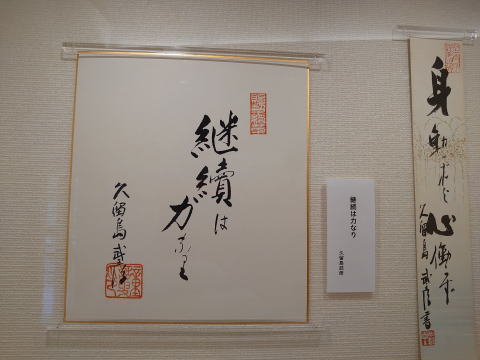 継續は
力なり
久留島武彦
継続は力なり
久留島武彦
身動 心働
久留島武彦書